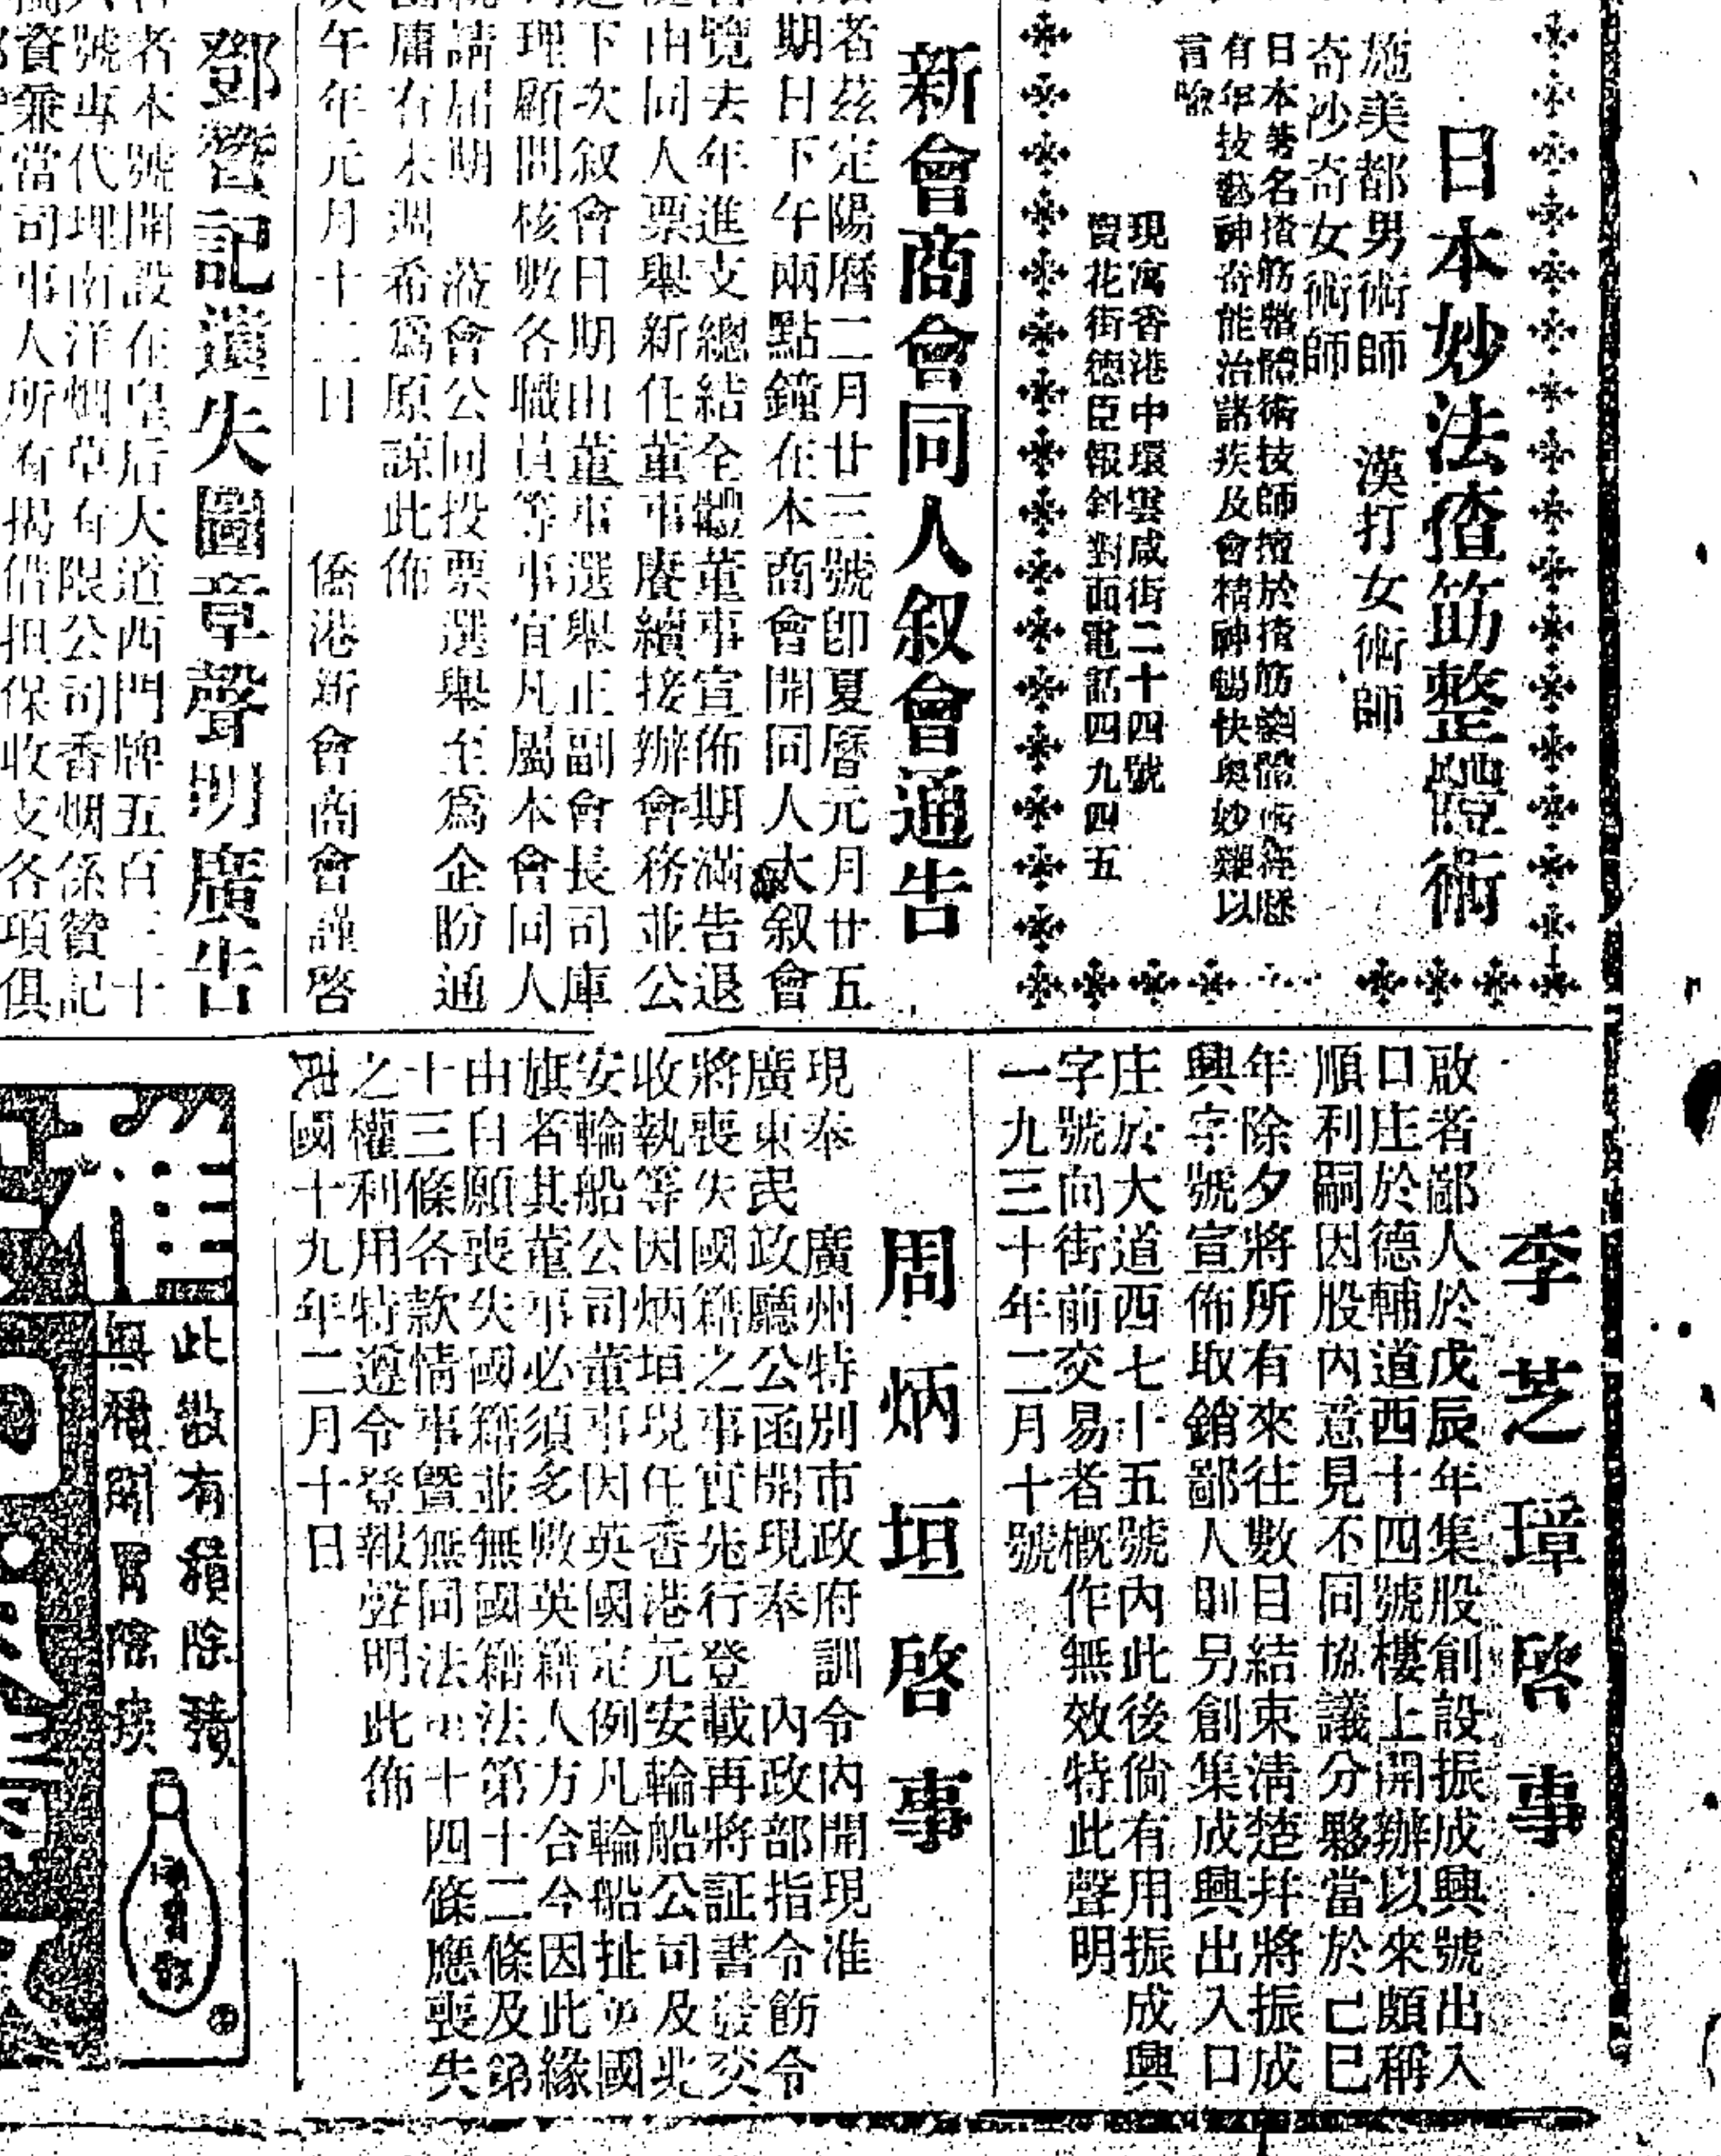 日本妙法揸筋整體術
施美都男術師 漢打女術師
奇沙奇女術師
日本著名揸筋整體術技師擅於揸筋整體術經歷
有年技藝神奇能治諸疾及會精神暢快奥妙難以
言喻
現寓香港中環雲咸街二十四號
賣花街德臣報斜對面電話四九四五
新會商會同人叙會通告
者兹定陽曆二月廿三號即夏曆元月廿五
期日下午兩點鐘在本商會開同人大叙會
覽去年進支總結全體董事宣佈期滿告退
由同人票舉新任董事賡續接辦會務並公
下次叙會日期由董事選舉正副會長司庫
理顧問核數各職員等事宜凡屬本會同人
請届期 蒞會公同投票選舉至爲企盼通
庸有未週希爲原諒此佈
午年元月十二日 僑港新會商會謹啓
鄧贊記遺失圖章聲明廣告
者本號開設在皇后大道西門牌五百三十
號專代理南洋烟草有限公司香烟係贊記
資兼當司事人所有揭借担保收支各項俱
李芝璋啓事
啟者鄙人於戊辰年集股創設振成興號出入
口庄於德輔道西十四號樓上開辦以來頗稱
順利嗣因股內意見不同協議分夥當於己巳
年除夕將所有來往數目結束清楚并將振成
興字號宣佈取銷鄙人則另創集成興出入口
庄於大道西七十五號內此後倘有用振成興
字號向街前交易者概作無效特此聲明
一九三十年二月十號
周炳垣啓事
現奉 廣州特別市政府訓令內開現准
廣東民政廳公函開現奉 內政部指令飭令
將喪失國籍之事實先行登載再將証書發交
收執等因炳垣現任香港元安輪船公司及北
安輪船公司董事因英國定例凡輪船扯英國
旗者其董事必須多數英籍人方合今因此緣
由自願喪失國籍並無國籍法第十二條及第
十三條各款情事曁無同法第十四條應喪失
之權利用特遵令登報聲明此佈
民國十九年二月十日
此散有積除積
無積開胃除痰